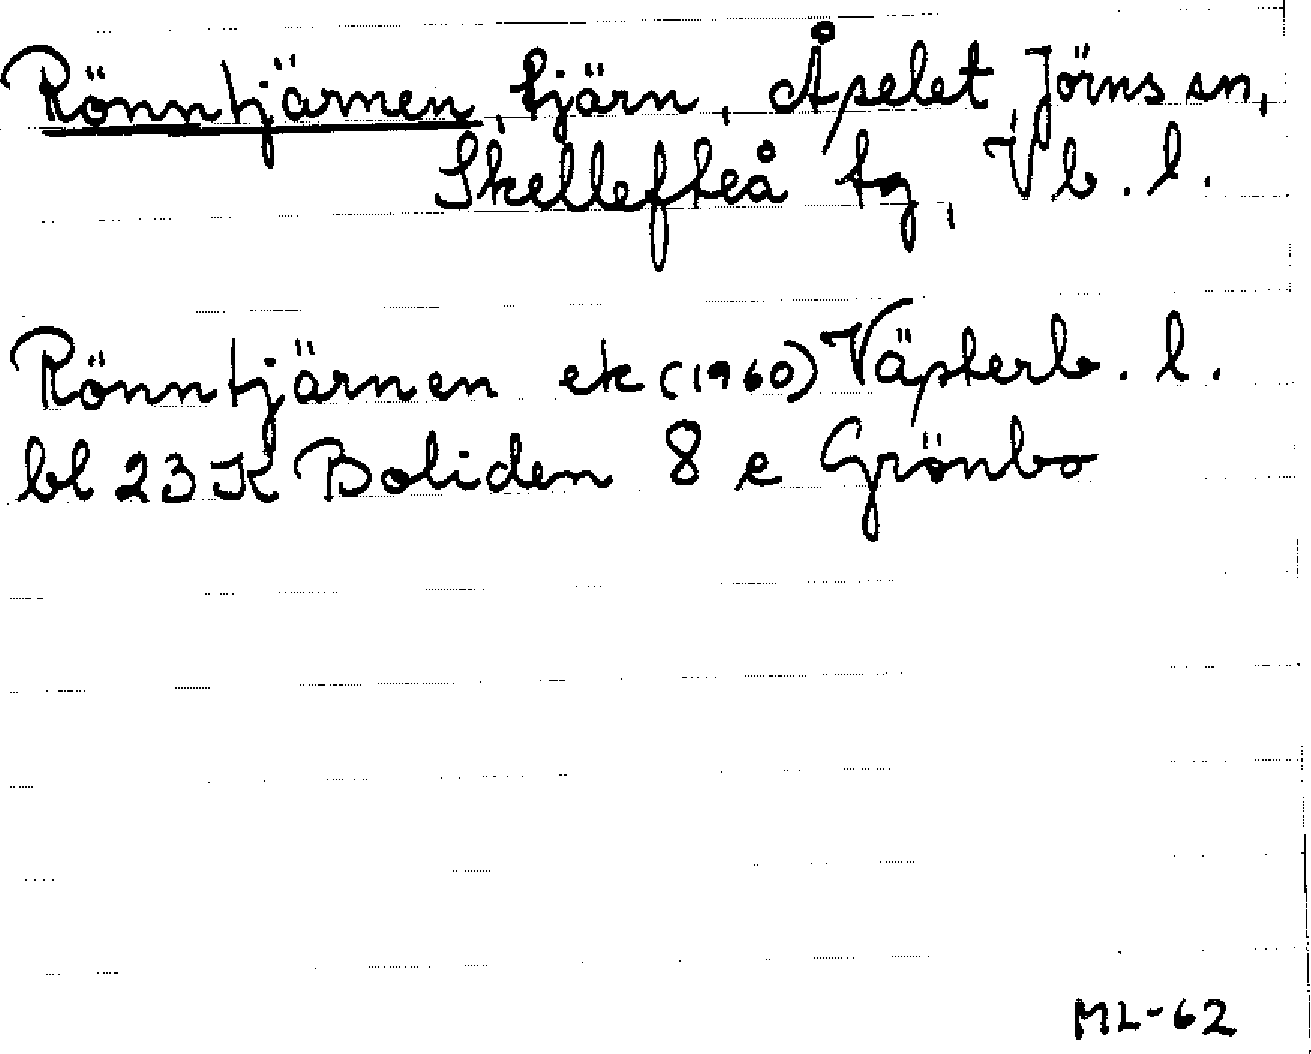 Rönntjärnen, tjärn, Åselet, Jörns sn,
Skellefteå tg, Vb. l.
Rönntjärnen ek (1960) Västerb. l.
bl 23 K Boliden 8 e Grönbo
ML-62